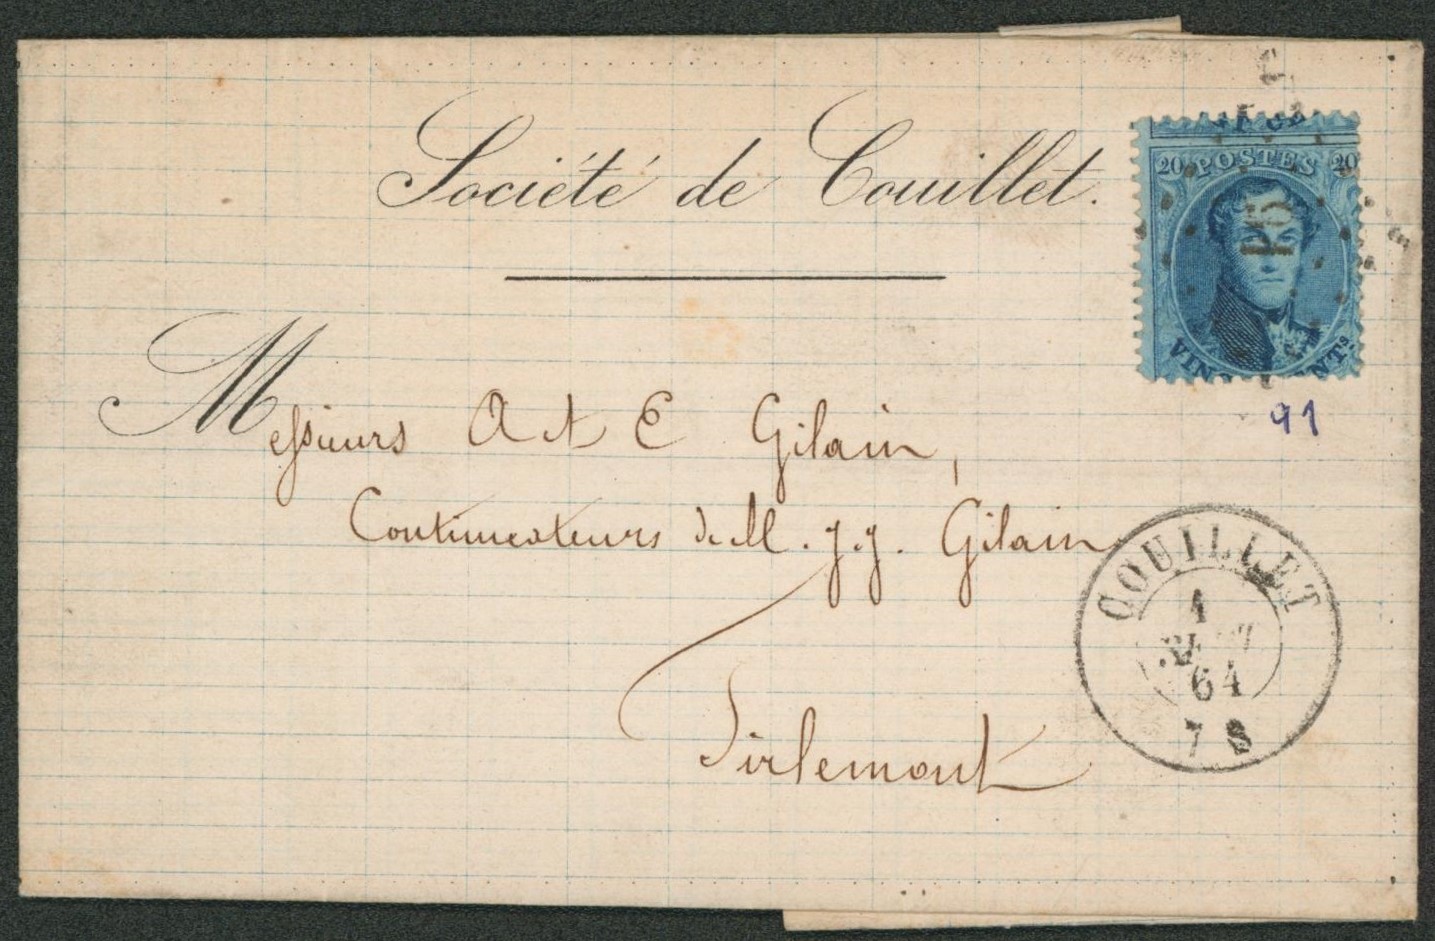 Société de Couillet.
20 POSTES 20
VINGT CENTS
91
Messieurs A et E Gilain,
Continuateurs de M. J.J. Gilain
Tirlemont
COUILLET
1
64
7 S